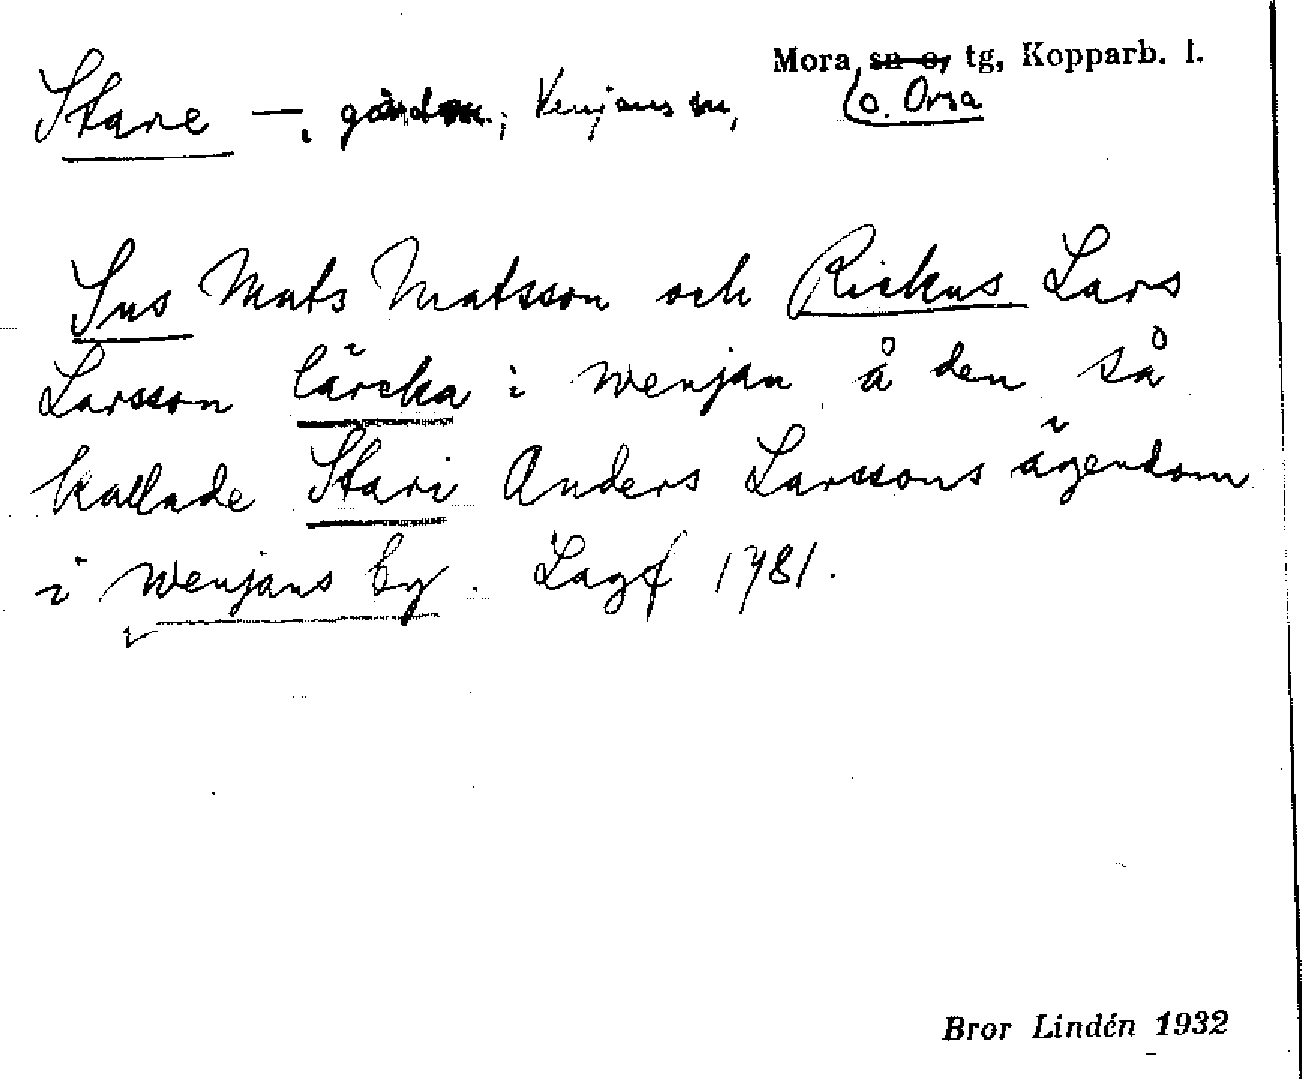 Mora sn o, tg, Kopparb. l.
o. Orsa
Stare —, gårdn.; Venjans sn,
Sus Mats Matsson och Rickus Lars
Larsson lärcka i wenjan å den så
kallade Stari Anders Larssons ägendom
i wenjans by. Lagf 1781.
Bror Lindén 1932